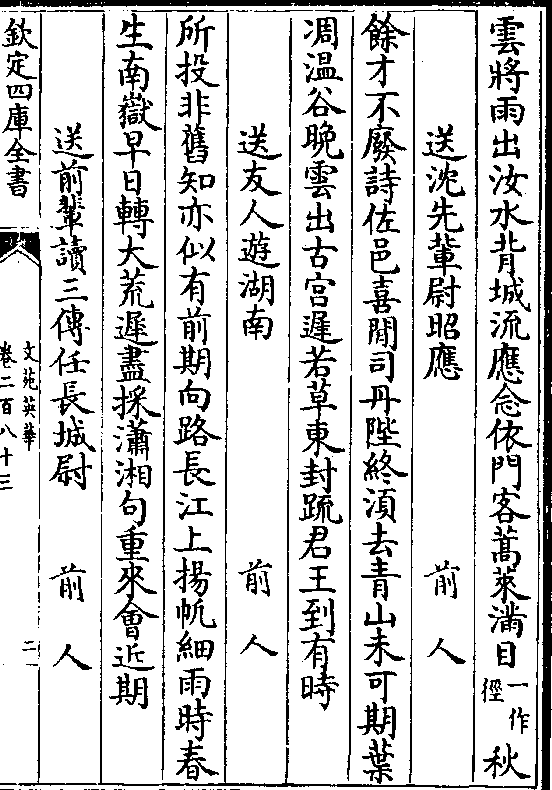 雲將雨出汝水背城流應念依門客蒿萊滿目一作徑秋
送沈先輩尉昭應　前人
餘才不廢詩佐邑喜閒司丹陛終須去青山未可期葉
凋温谷晚雲出古宫遲若草東封疏君王到有時
送友人遊湖南　前人
所投非舊知亦似有前期向路長江上揚帆細雨時春
生南嶽早日轉大荒遲盡採瀟湘句重來會近期
送前輩讀三傳任長城尉　前人
欽定四庫全書
文苑英華
卷二百八十三
二